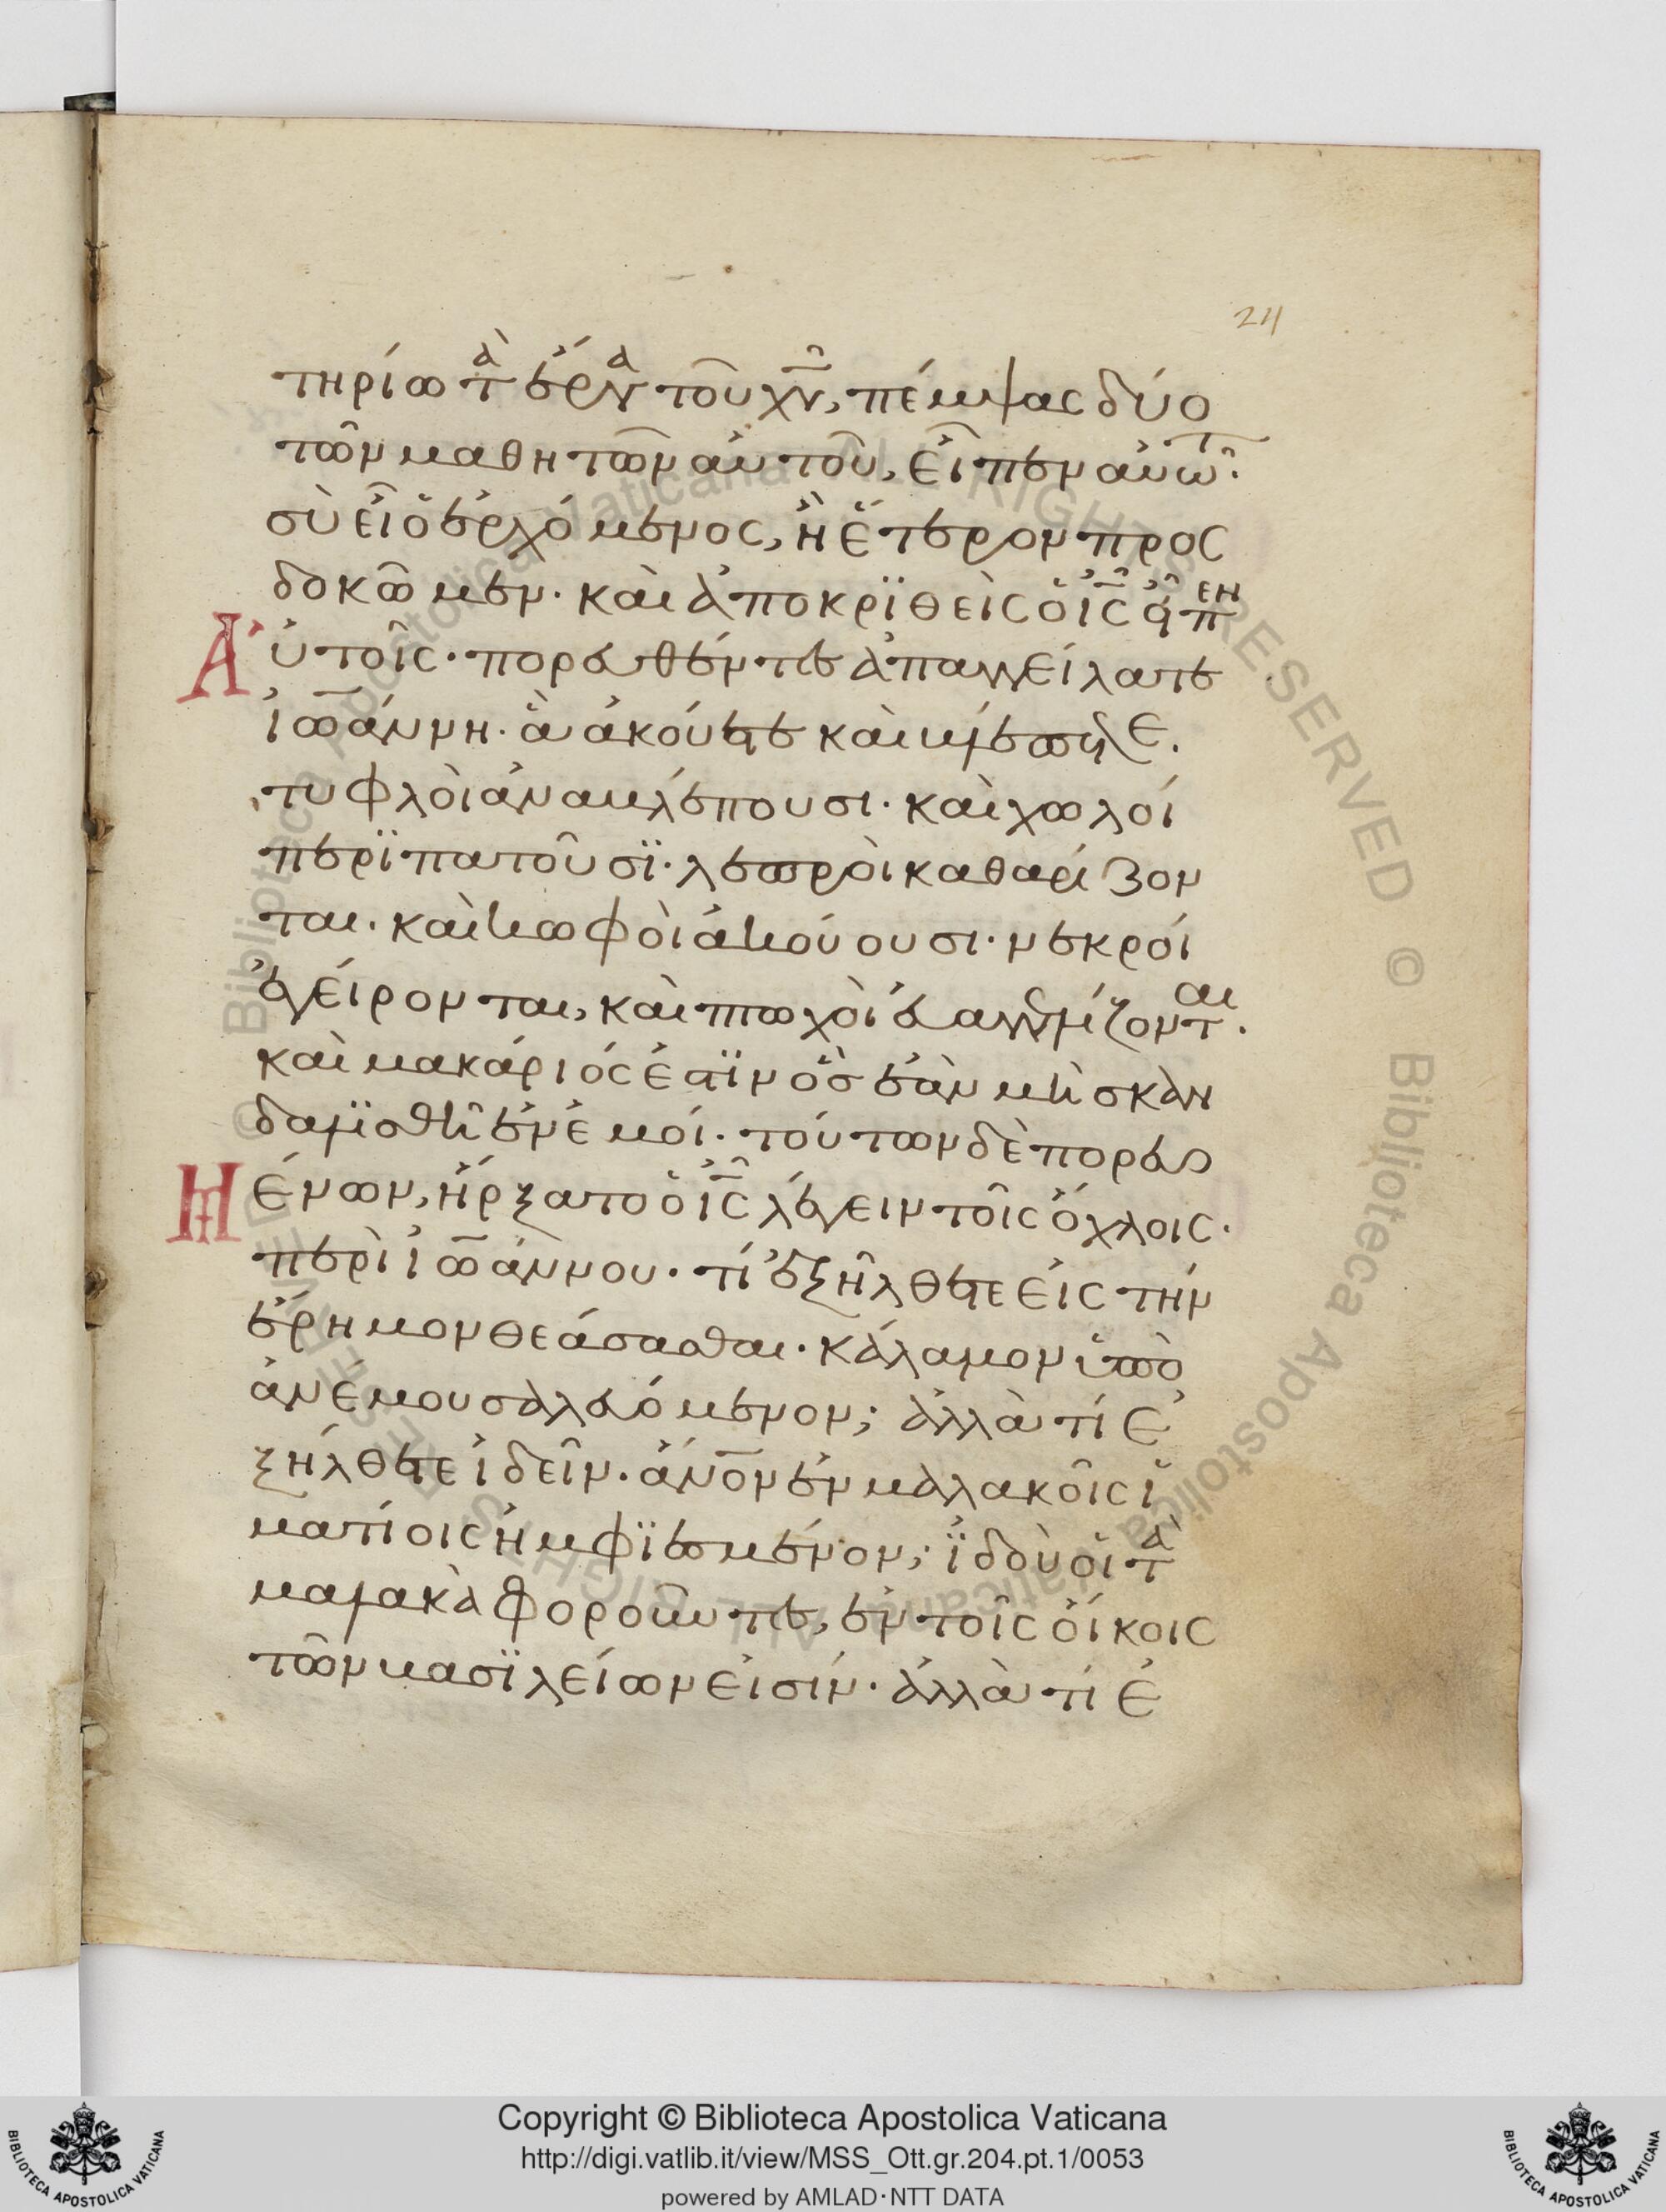 24
τηρίω τὰ ἔργα τοῦ χυ̑, πέμψας δύο
τῶν μαθητῶν αὐτοῦ, εἶπεν αὐτῶ·
σὺ εἶ ὁ ἐρχόμενος, ἢ ἕτερον προσ
δοκῶμεν· καὶ ἀποκρϊθεὶς ὁ ἰς̑ εἶπεν
Ἀ ὐτοῖς· πορευθέντες ἀπαγγείλατε
ἰωάννη· ἃ ἀκούετε καὶ βλέπετε.
τυφλοὶ ἀναβλέπουσι· καὶ χωλοί
περϊπατοῦσϊ· λεπροὶ καθαρίζον
ται· καὶ κωφοὶ ἀκούουσι· νεκροί
ἐγείρονται, καὶ πτωχοὶ εὐαγγελίζονται·
καὶ μακάριός ἐστϊν ὃς ἐὰν μὴ σκαν
δαλϊσθῆ ἐν ἐμοί· τούτων δὲ πορευο
Η μ
ένων, ἤρξατο ὁ ἰς̑ λέγειν τοῖς ὄχλοις·
περὶ ἰωάννου· τί ἐξῆλθετε εἰς τήν
ἔρημον θεάσασθαι· κάλαμον ὑπὸ
ἀνέμου σαλευόμενον; ἀλλὰ τί ἐ
ξήλθετε ἰδεῖν· ἄνον ἐν μαλακοῖς ἱ
ματίοις ἠμφϊεσμένον; ἰδοὺ οἱ τὰ
μαλακὰ φοροῦντες, ἐν τοῖς οἴκοις
τῶν βασϊλείων εἰσίν· ἀλλὰ τί ἐ
Copyright © Biblioteca Apostolica Vaticana
http://digi.vatlib.it/view/MSS_Ott.gr.204.pt.1/0053
powered by AMLAD·NTT DATA
BIBLIOTECA APOSTOLICA VATICANA
BIBLIOTECA APOSTOLICA VATICANA